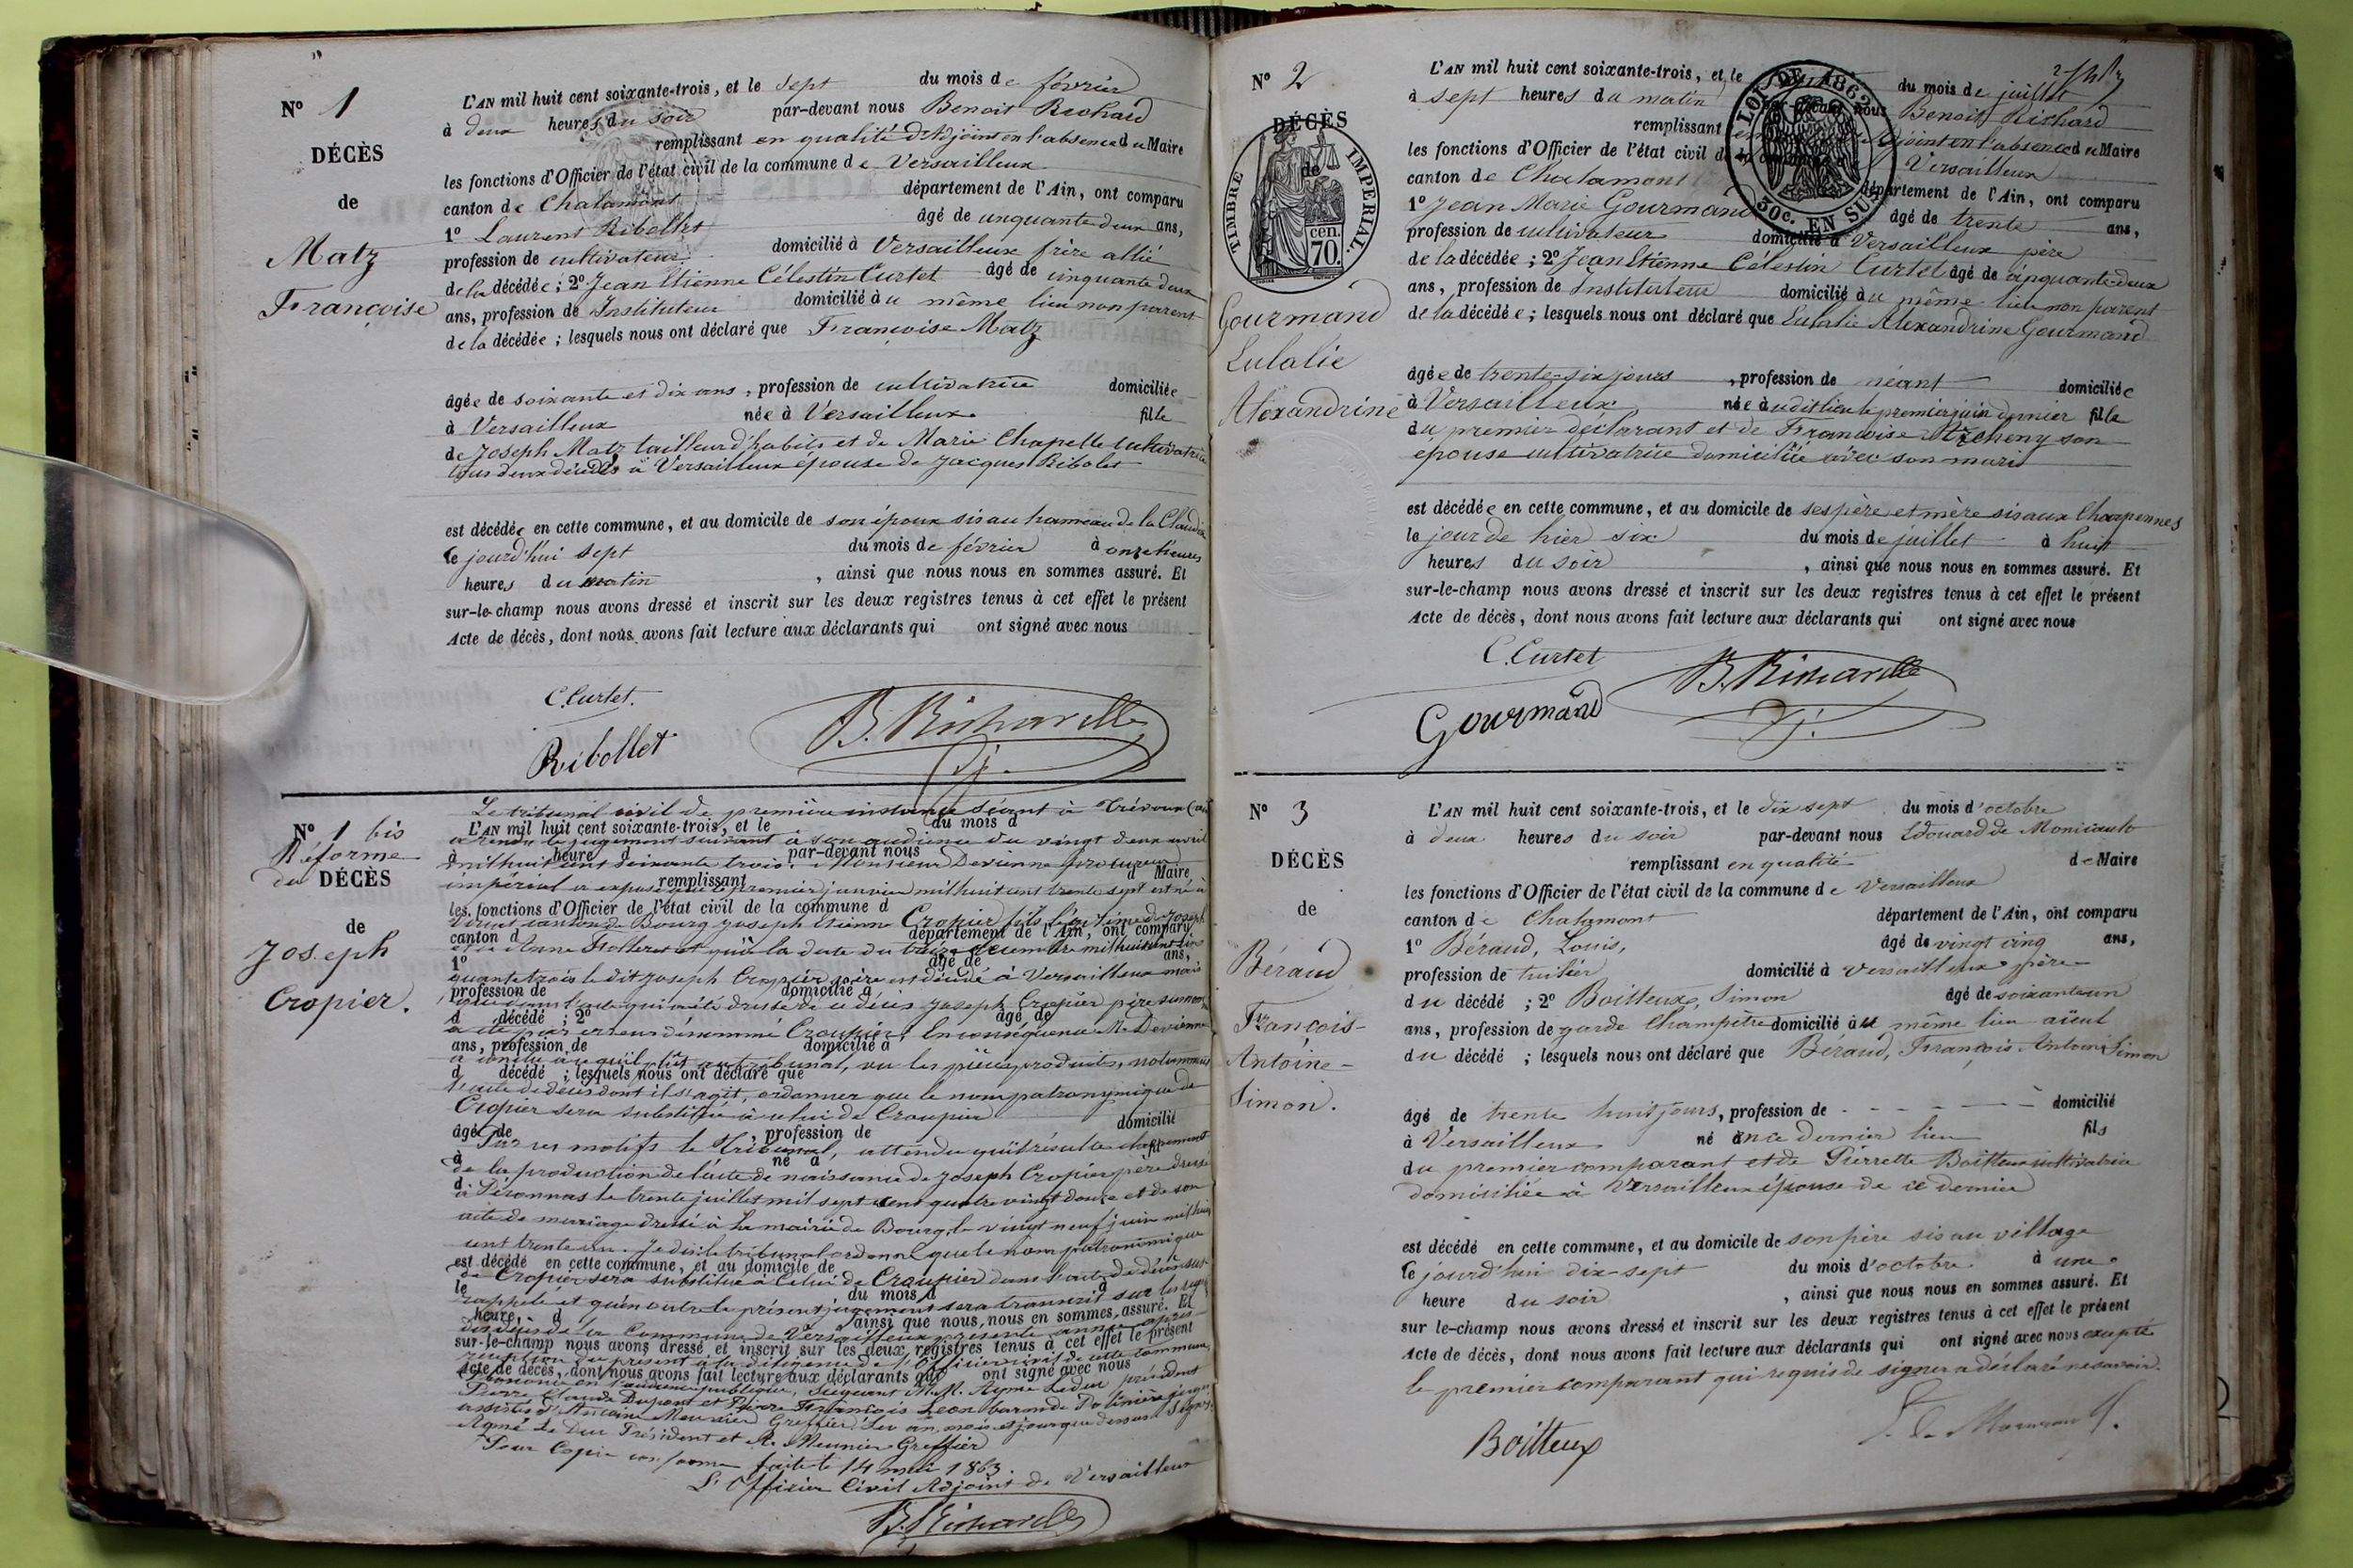 N° 1
DÉCÈS
de
Matz
Françoise
L'AN mil huit cent soixante-trois, et le sept du mois de février
à deux heures du soir par-devant nous Benoit Richard
remplissant en qualité d'Adjoint en l'absence du Maire
les fonctions d'Officier de l'état civil de la commune de Versailleux
canton de Chalamont département de l'Ain, ont comparu
1° Laurent Ribollet âgé de cinquante deux ans,
profession de cultivateur domicilié à Versailleux frère allié
de la décédée ; 2° Jean Etienne Célestin Curtet âgé de cinquante deux
ans, profession de Instituteur domicilié au même lieu non parent
de la décédée ; lesquels nous ont déclaré que Françoise Matz
âgée de soixante et dix ans, profession de cultivatrice domiciliée
à Versailleux née à Versailleux fille
de Joseph Matz tailleur d'habits et de Marie Chapelle cultivatrice
tous deux décédés à Versailleux épouse de Jacques Ribolet
est décédée en cette commune, et au domicile de son époux sis au hameau de la
le jourd'hui sept du mois de février à onze heures
heures du matin, ainsi que nous nous en sommes assuré. Et
sur-le-champ nous avons dressé et inscrit sur les deux registres tenus à cet effet le présent
Acte de décès, dont nous avons fait lecture aux déclarants qui ont signé avec nous
C. Curtet.
Ribollet
B. Richard
N° 1 bis
Réforme
du DÉCÈS
de
Joseph
Cropier.
Le tribunal civil de première instance séant à Trévoux
L'AN mil huit cent soixante-trois, et le du mois d
a rendu le jugement suivant à son audience du vingt deux avril
à heure d par-devant nous
mil huit cent soixante trois. Monsieur Devienne procureur
remplissant d Maire
impérial a exposé que le premier janvier mil huit cent trente sept est né à
les fonctions d'Officier de l'état civil de la commune d
canton de Bourg Joseph Etienne Cropier fils légitime de Joseph
canton d département de l'Ain, ont comparu
et de Anne et qu'à la date du treize décembre mil huit cent cin
1° âgé de ans,
quante trois le dit Joseph Cropier père est décédé à Versailleux mais
profession de domicilié à
que dans l'acte qui a été dressé de ce décès Joseph Cropier père
d décédé ; 2° âgé de
a été par erreur dénommé Croupier. En conséquence M. Devienne
ans, profession de domicilié à
a conclu à ce qu'il plût au tribunal, vu les pièces produites, notamment
d décédé ; lesquels nous ont déclaré que
l'acte de décès dont il s'agit, ordonner que le nom patronymique de
Cropier sera substitué à celui de Croupier
âgé de , profession de domicilié
Par ces motifs le tribunal, attendu qu'il résulte
à né à fil
de la production de l'acte de naissance de Joseph Cropier père dressé
d
à Péronnas le trente juillet mil sept cent quatre vingt douze et de son
acte de mariage dressé à la mairie de Bourg, le vingt neuf juin mil huit
cent trente un. Je dis le tribunal ordonne que le nom patronimique
est décédé en cette commune, et au domicile de
de Cropier sera substitué à celui de Croupier dans l'acte de décès sus
le du mois d à
rappelé et qu'en outre le présent jugement sera transcrit sur les
heure d , ainsi que nous, nous en sommes assuré. Et
des décès de la Commune de Versailleux présente année après
sur-le-champ nous avons dressé et inscrit sur les deux registres tenus à cet effet le présent
réception du présent à la diligence de l'Officier civil de cette commune
Acte de décès, dont nous avons fait lecture aux déclarants qui ont signé avec nous
Prononcé en l'audience publique, siégeant M.M. Ayme Leduc président
Pierre Claude Dupont et Pierre François Léon baron de juges
assistés d'Antoine Meunier Greffier. Les an, mois et jour que dessus. Signés
Aymé Le Duc Président et A. Meunier Greffier
Pour Copie conforme faite le 14 mai 1863.
L'Officier Civil Adjoint de Versailleux
B. Richard
N° 2
DÉCÈS
de
TIMBRE IMPERIAL.
cen.
70.
Gourmand
Eulalie
Alexandrine
LOI DE 1862
50c. EN SUS
L'AN mil huit cent soixante-trois, et le du mois de juillet
à sept heures du matin par-devant nous Benoit Richard
remplissant en Adjoint en l'absence du Maire
les fonctions d'Officier de l'état civil de la commune de Versailleux
canton de Chalamont département de l'Ain, ont comparu
1° Jean Marie Gourmand âgé de trente ans,
profession de cultivateur domicilié à Versailleux père
de la décédée ; 2° Jean Etienne Célestin Curtet âgé de cinquante-deux
ans, profession de Instituteur domicilié au même lieu non parent
de la décédée ; lesquels nous ont déclaré que Eulalie Alexandrine Gourmand
âgée de trente-six jours, profession de néant domiciliée
à Versailleux née au dit lieu le premier juin dernier fille
du premier déclarant et de Françoise son
épouse cultivatrice domiciliée avec son mari
est décédée en cette commune, et au domicile de ses père et mère sis aux Charpennes
le jour de hier six du mois de juillet à huit
heures du soir, ainsi que nous nous en sommes assuré. Et
sur-le-champ nous avons dressé et inscrit sur les deux registres tenus à cet effet le présent
Acte de décès, dont nous avons fait lecture aux déclarants qui ont signé avec nous
C. Curtet
B. Richard
Gourmand
N° 3
DÉCÈS
de
Béraud
François-
Antoine-
Simon.
L'AN mil huit cent soixante-trois, et le dix sept du mois d'octobre
à deux heures du soir par-devant nous Edouard de Monicault
remplissant en qualité de Maire
les fonctions d'Officier de l'état civil de la commune de Versailleux
canton de Chalamont département de l'Ain, ont comparu
1° Béraud, Louis, âgé de vingt cinq ans,
profession de tuilier domicilié à Versailleux père
du décédé ; 2° Boitteux, Simon âgé de soixante un
ans, profession de garde Champêtre domicilié au même lieu aïeul
du décédé ; lesquels nous ont déclaré que Béraud, François Antoine Simon
âgé de trente huit jours, profession de - - - - - domicilié
à Versailleux né en ce dernier lieu fils
du premier comparant et de Pierrette Boitteux cultivatrice
domiciliée à Versailleux épouse de ce dernier
est décédé en cette commune, et au domicile de son père sis au village
le jourd'hui dix-sept du mois d'octobre à une
heure du soir, ainsi que nous nous en sommes assuré. Et
sur le-champ nous avons dressé et inscrit sur les deux registres tenus à cet effet le présent
Acte de décès, dont nous avons fait lecture aux déclarants qui ont signé avec nous excepté
le premier comparant qui requis de signer a déclaré ne savoir.
Boitteux